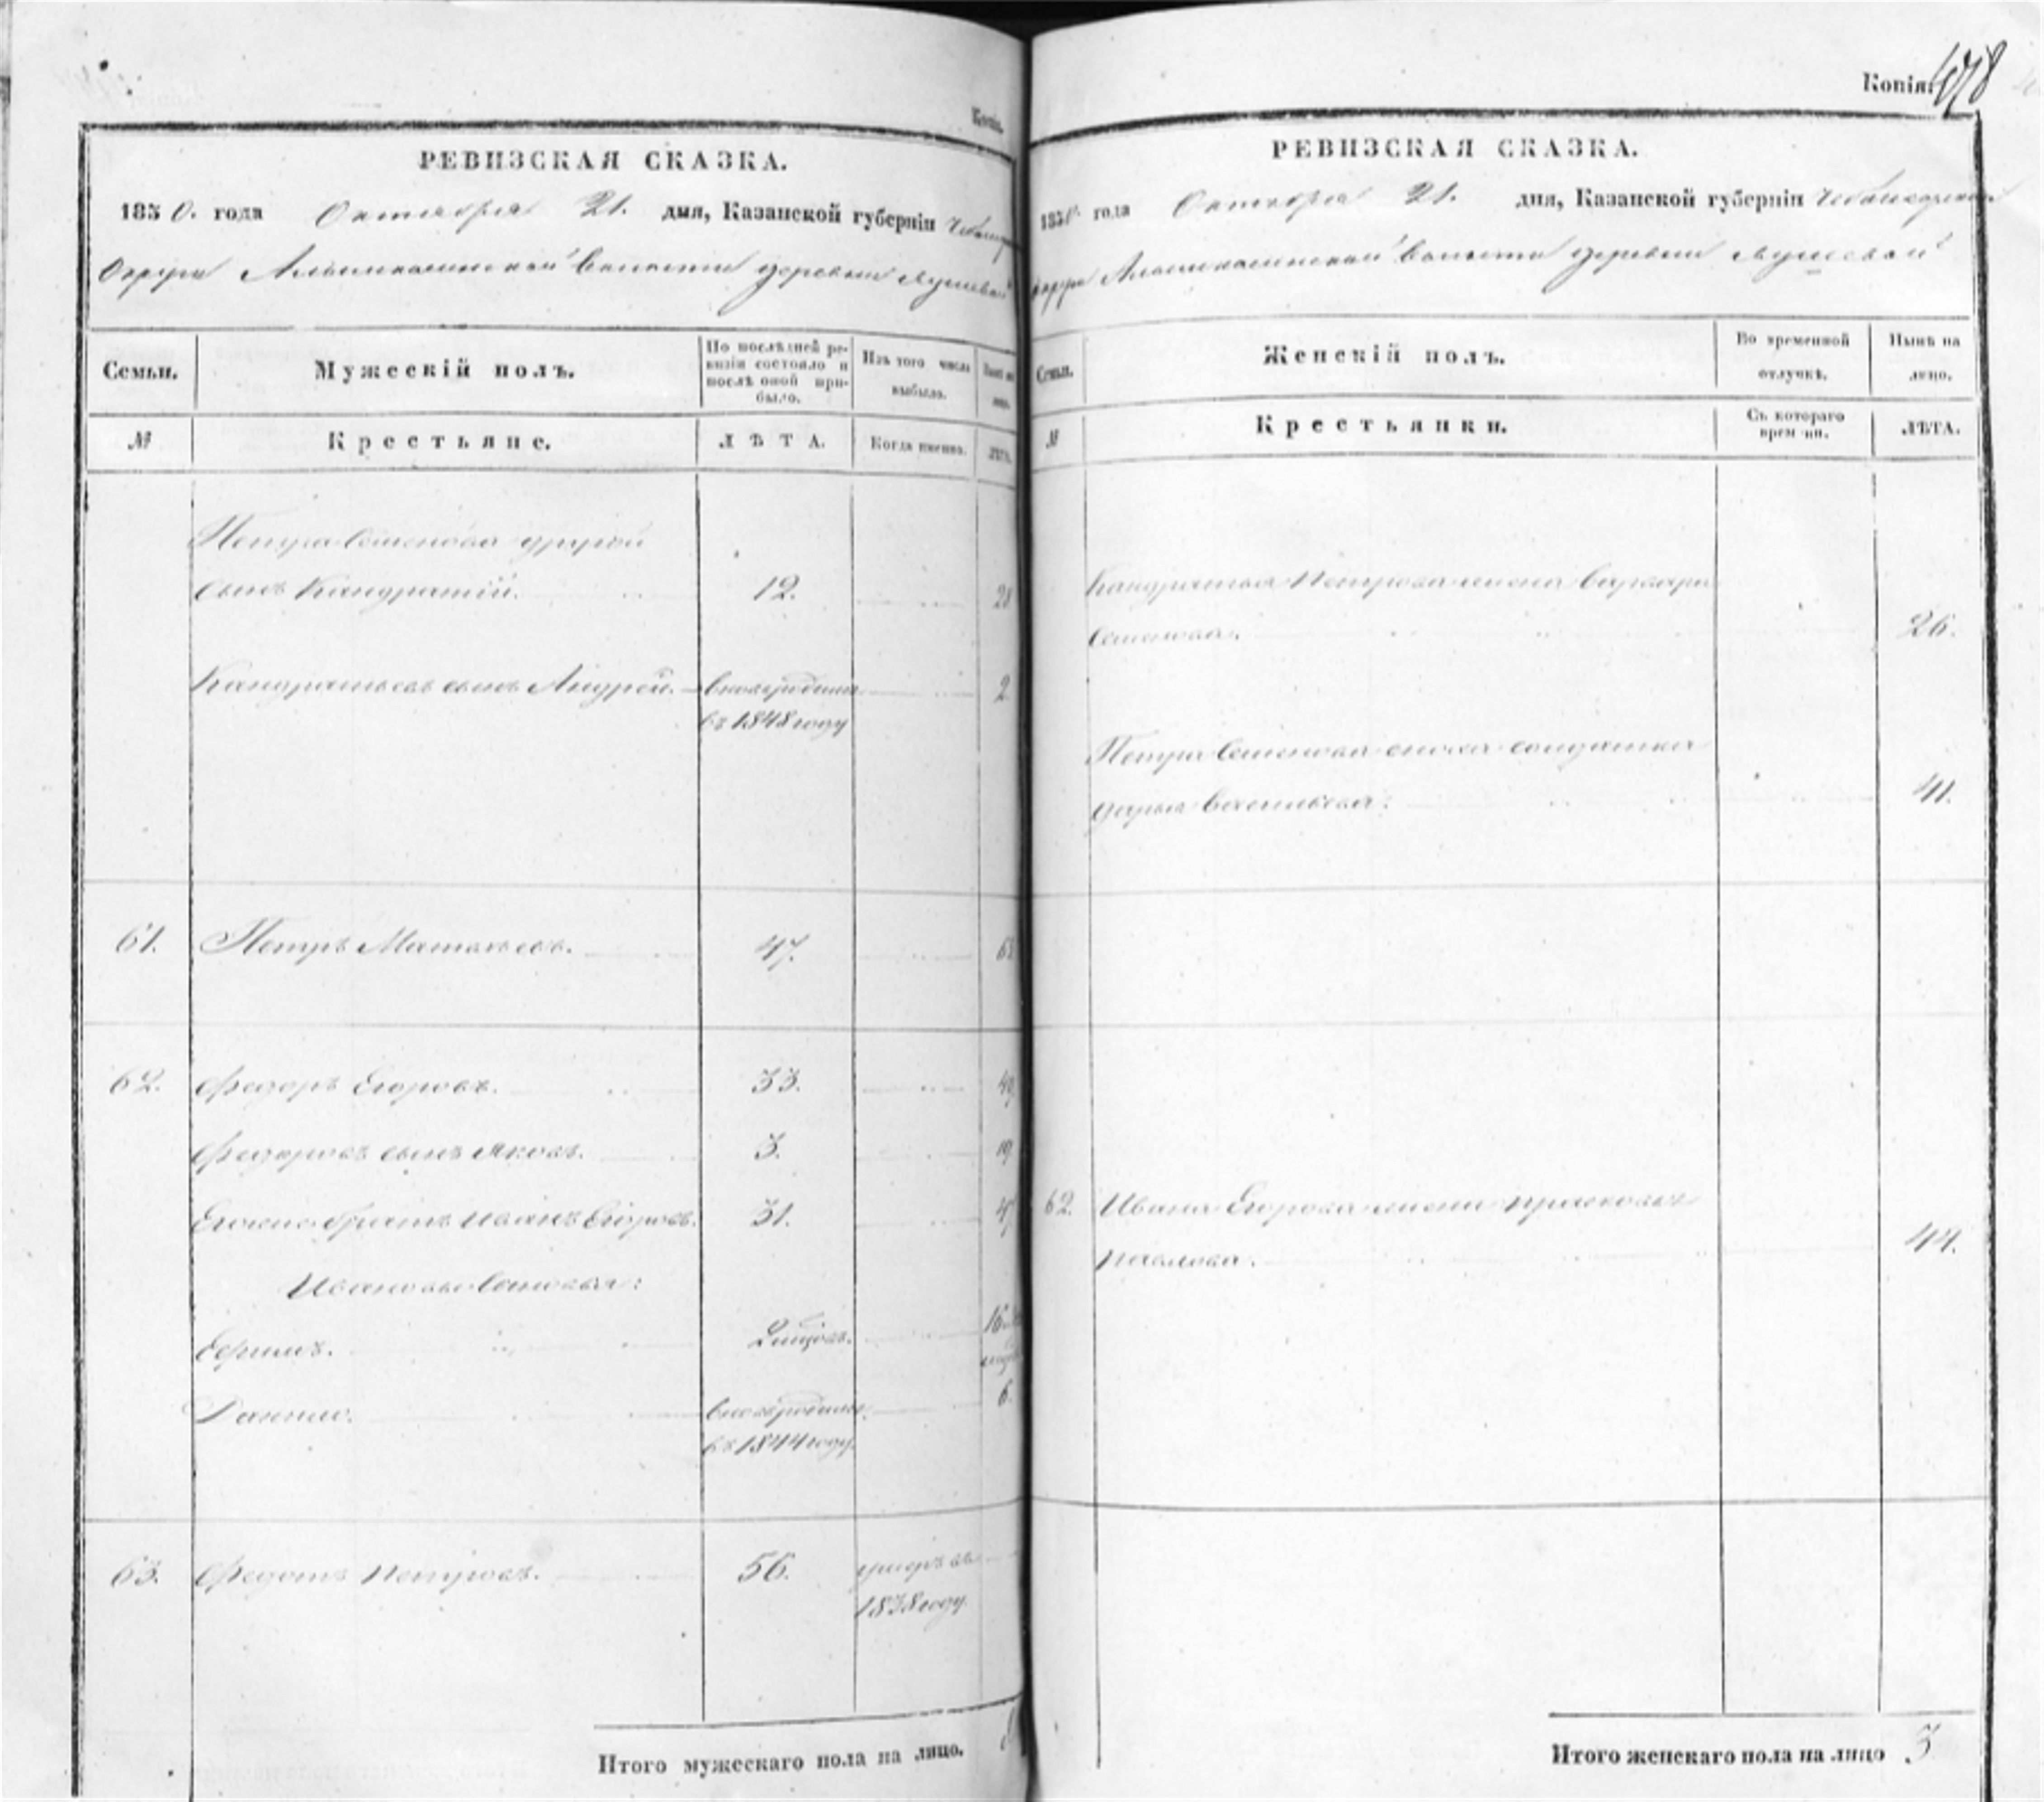 Копія.
РЕВИЗСКАЯ СКАЗКА.
1850. года Октября 21. дня, Казанской губерніи
Округи волости деревни
Семьи.
Мужескій полъ.
По послѣдней ре-
визіи состояло и
послѣ оной при-
было.
Изъ того числа
выбыло.
№
Крестьяне.
ЛѢТА.
Когда именно.
ЛѢТА.
Петра Семенова другой
сынъ Кандратій. 12. 28
Кандратьевъ сынъ Андрей. вновьрожденъ 2
въ 1848 году
61. Петръ Матвѣевъ. 47. 63
62. Федоръ Егоровъ. 33. 49
Федоровъ сынъ Яковъ. 3. 19
Егоже братъ Иванъ Егоровъ. 31. 47
Ивановы сыновья:
Ефимъ. 16
Данило. 6.
въ 1844 году.
63. Федотъ Петровъ. 56. умеръ въ
1838 году
Итого мужескаго пола на лицо.
Копія. 478
РЕВИЗСКАЯ СКАЗКА.
1850 года Октября 21. дня, Казанской губерніи
волости деревни
Семьи.
Женскій полъ.
Во временной
отлучкѣ.
Нынѣ на
лицо.
№
Крестьянки.
Съ котораго
времени.
ЛѢТА.
Кандратья Петрова жена Варвара
Семенова. 26.
Петра Семенова сноха солдатка
Дарья Васильева. 41.
62. Ивана Егорова жена Прасковья
Павлова. 44.
Итого женскаго пола на лицо 3